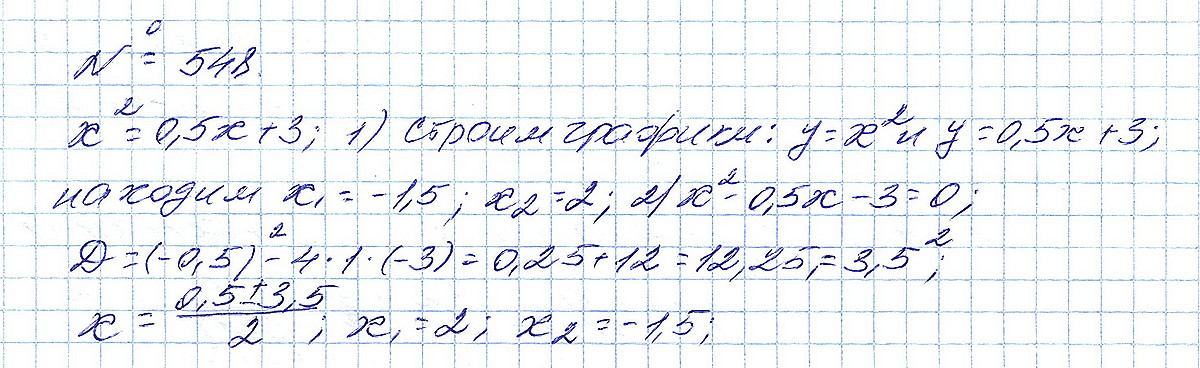 № = 548.
x² = 0,5x + 3; 1) Строим графики: y = x² и y = 0,5x + 3;
находим x₁ = -1,5; x₂ = 2; 2) x² - 0,5x - 3 = 0;
D = (-0,5)² - 4 · 1 · (-3) = 0,25 + 12 = 12,25 = 3,5²;
x = (0,5 ± 3,5)/2; x₁ = 2; x₂ = -1,5;